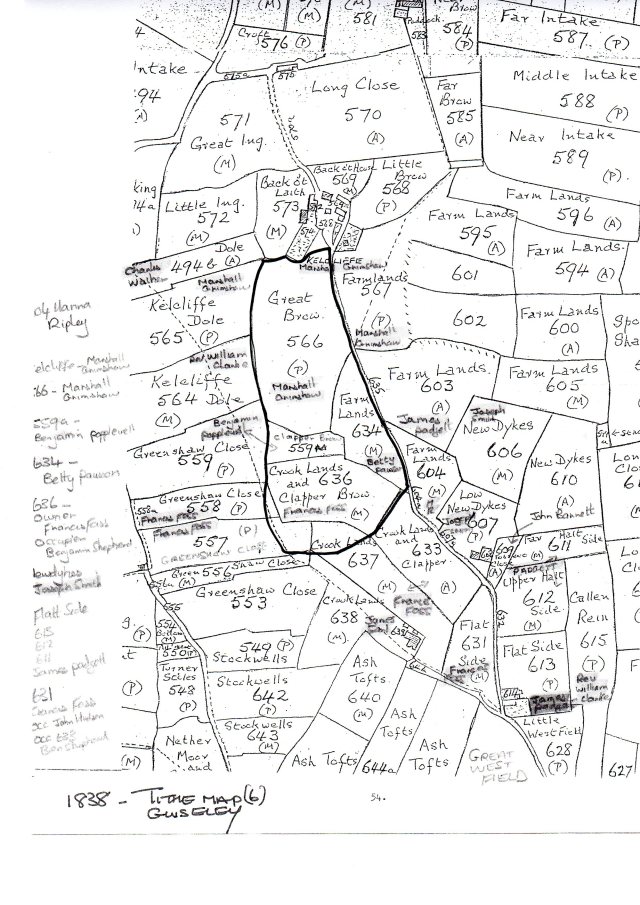 (M)
(M)
581
Croft
576 (P)
583
Brow
584
(P)
Far Intake
587 (P)
Intake
594
(A)
575a
575
Long Close
570
(A)
Far
Brow
585
(A)
Middle Intake
588
(P)
571
Great Ing.
(M)
Near Intake
589
(P)
Back o't House
569
(M)
Little
Brow
568
(P)
Back o't
Laith
573
(M)
Little Ing.
572
(M)
574
Farm Lands
596 (A)
Farm Lands
595
(A)
Farm Lands
594 (A)
Dole
494b (A)
Charles
Walker
Marshall
Grimshaw
KELCLIFFE
Marshall Grimshaw
Farmlands
567
(P)
Marshall
Grimshaw
601
602
Farm Lands
600
(A)
Ripley
Kelcliffe
Dole
565 (P)
Great
Brow
566
(P)
Marshall
Grimshaw
Rev William
Clarke
Kelcliffe
564 Dole
(M)
Farm Lands
603
(A)
Farm Lands
605
(M)
Farm
Lands
634
(M)
Betty
Benjamin
Popplewell
Clapper
559a
Greenshaw Close
559 (P)
Crook Lands
and 636
Clapper Brow.
Francis Foss
(M)
James
Padgett
Farm
Lands
604
(M)
Joseph
Smith
New Dykes
606
(M)
New Dykes
610
(A)
Low
New Dykes
607
John Barrett
Far Halt
611 Side
Greenshaw Close
558 (P)
558a
Francis Foss
Francis Foss
557
(P)
GREENSHAW CLOSE
Green 556 Shaw Close
Greenshaw Close
553
Crook Lands
637
(M)
Crook Lands
and
633
Clapper
(A)
Francis
Foss
Crook Lands
638
(M)
James
639
609
Close
(A)
PADGETT
Upper Halt
612
Side.
(M)
632
Callen
Rein
615
(P)
Flat
631
Side
Francis
(M)
Flat Side
613
(P)
614
James
Padgett
Rev
William
Clarke
555
554
550
549 (P)
Stockwells
Turner
Stiles
548
(P)
Stockwells
642
(P)
Stockwells
643
(M)
Nether
Moor
and
Ash
Tofts
640
(M)
Ash
Tofts
Ash
Tofts
Ash Tofts
644a
Little
West Field
628
(P)
627
GREAT
WEST
FIELD
Kelcliffe - Marshall
Grimshaw
566 - Marshall
Grimshaw
559a -
Benjamin Popplewell
634 -
Betty Pawson
636 -
Owner
Francis Foss
Occupier
Benjamin Shepherd
Joseph Smith
Flatt Side
613
612
611
James padgett
631
Francis Foss
occ John Hudson
occ 638
Ben Shepherd
1838 - TITHE MAP (6)
GUISELEY
54.